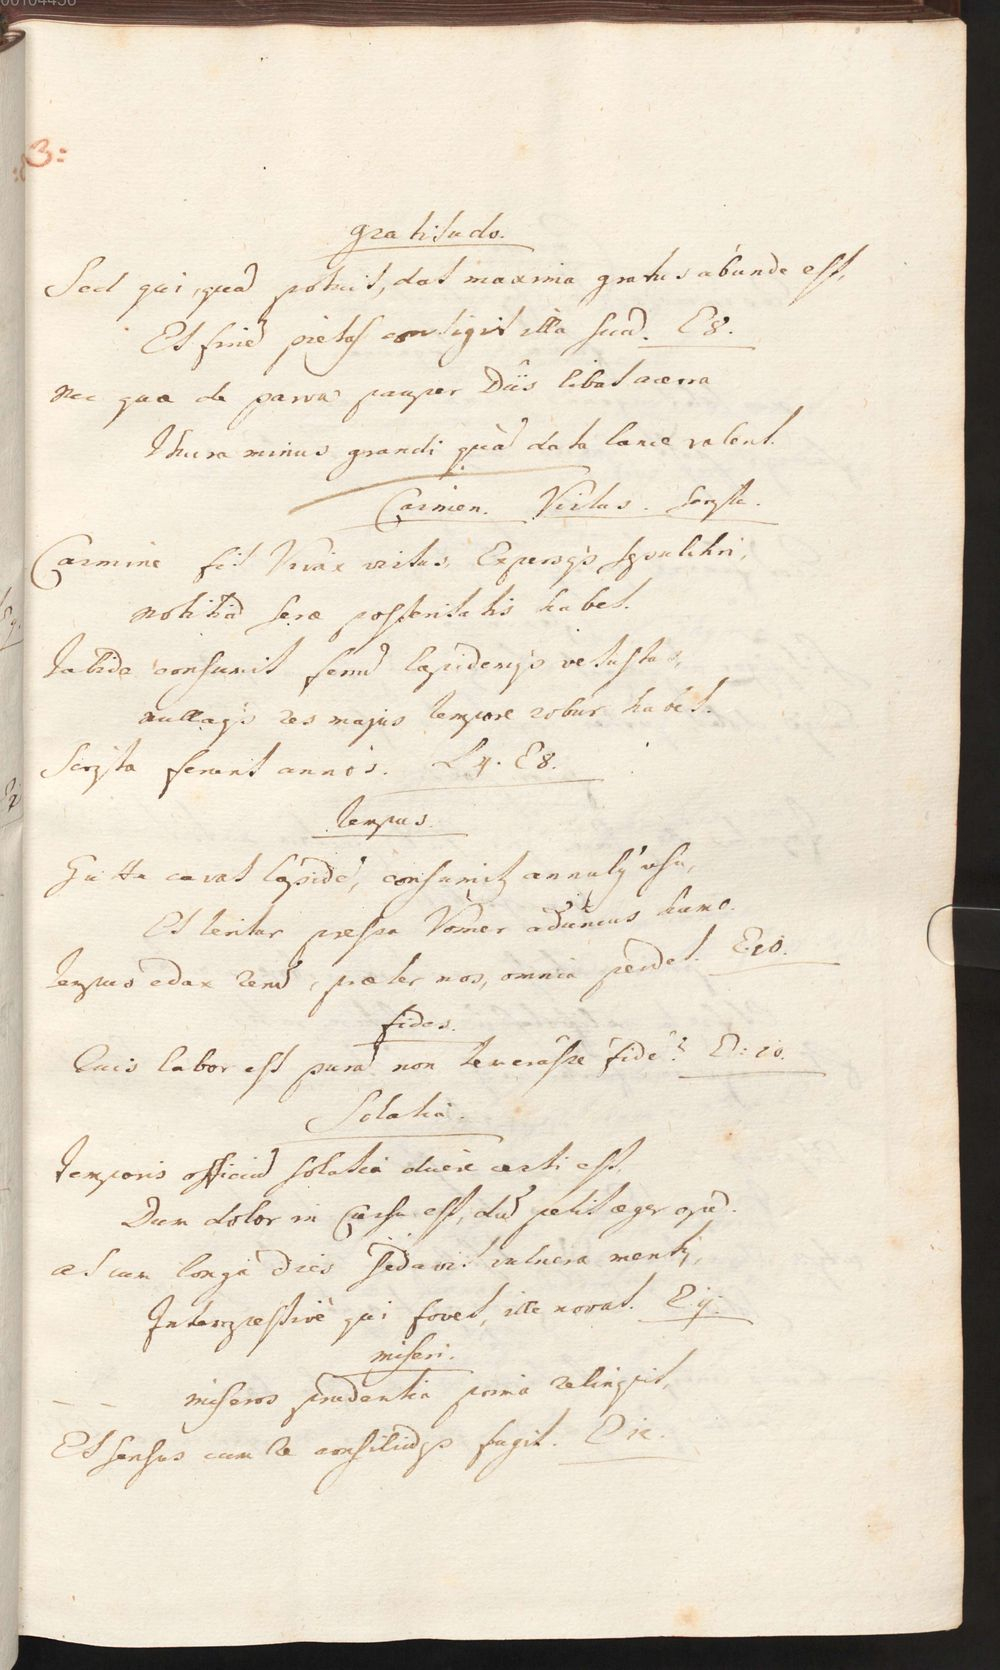 00104436
:83:
gratitudo.
Sed qui, quad potuit, dat maxima gratus abunde est,
Et finẽ pietas contigit illa suũ. E8.
Nec quæ de parva pauper Diis libat acerra
Thura minus grandi quã data lance valent.
Carmen. Virtus. Scripta.
Carmine fit Vivax virtus, Expersq̃ sepulchri,
notitiã seræ posteritatis habet.
Tabida consumit ferrũ lapidemq̃ vetustas,
nullaq̃ res majus tempore robur habet.
Scripta ferunt annos. L4. E8.
tempus.
Gutta cavat lapidẽ, consumitur annulus usu,
Et teritur pressa Vomer aduncus humo.
tempus edax rerũ, præter nos, omnia perdet. E10.
fides.
Quis labor est purã non temerasse fidẽ? E:10.
Solatia.
Temporis officiũ solatia dicere certi est,
Dum dolor in Cursu est, dũ petit æger opẽ.
at cum longa dies sedavit vulnera mentis,
Intempestivè qui fovet, ille novat. E ij.
miseri.
_ _ miseros prudentia prima relinquit,
Et sensus cum re consiliũq̃ fugit. E 12.